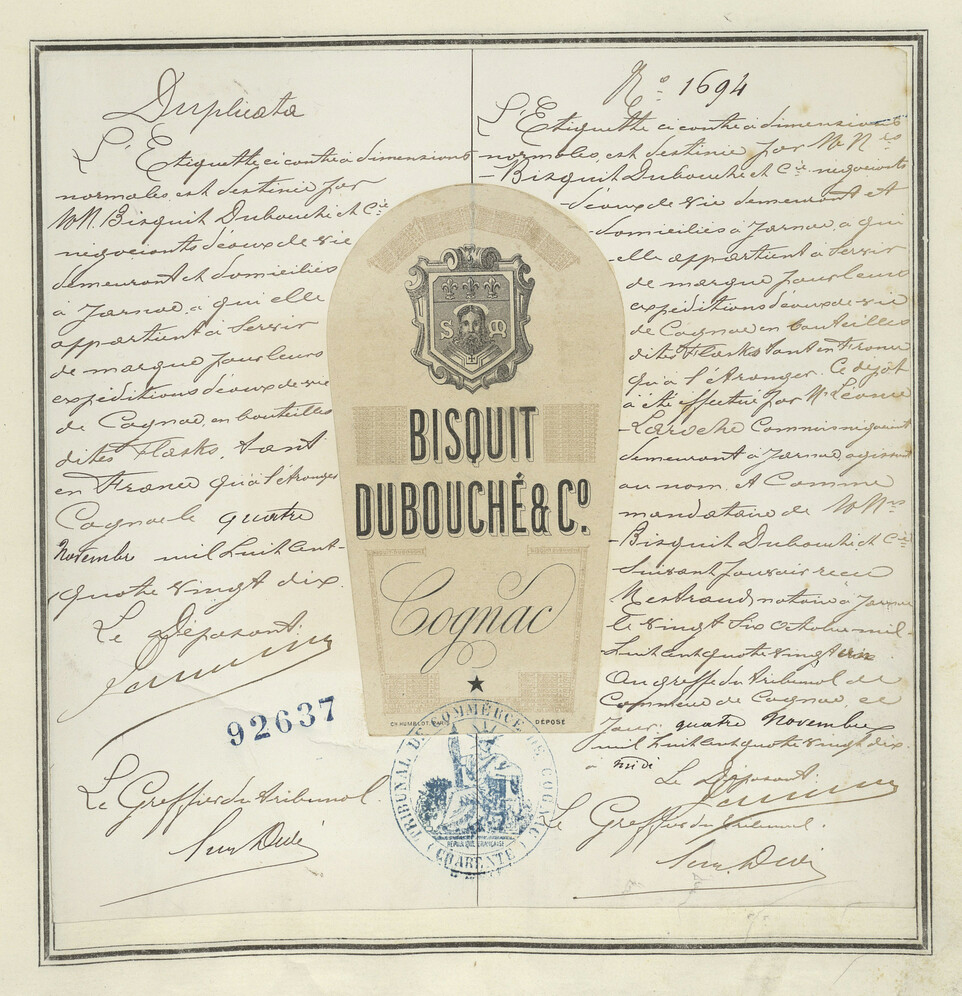 Duplicata
L'Etiquette ci contre à dimensions
normales, est destinée par
MM. Bisquit Dubouché et Cie
négociants d'eaux de vie
demeurant et domiciliés
à Jarnac, à qui elle
appartient à servir
de marque pour leurs
expéditions d'eaux de vie
de Cognac, en bouteilles
dites Flasks, tant
en France qu'à l'étranger
Cognac le quatre
Novembre mil huit cent
quatre vingt dix
Le Déposant
92637
Le Greffier du tribunal
BISQUIT
DUBOUCHÉ & Co.
Cognac
S M
DÉPOSÉ
TRIBUNAL DE COMMERCE DE COGNAC
(CHARENTE)
RÉPUBLIQUE FRANÇAISE
No 1694
L'Etiquette ci contre à dimensions
normales, est destinée par MM
Bisquit Dubouché et Cie négociants
d'eaux de vie demeurant et
domiciliés à Jarnac, à qui
elle appartient à servir
de marque pour leurs
expéditions d'eaux de vie
de Cognac en bouteilles
dites Flasks tant en France
qu'à l'étranger. Ce dépôt
a été effectué par Mr Léonce
Laroche Commis négociant
demeurant à Jarnac agissant
au nom et Comme
mandataire de MMrs
Bisquit Dubouché et Cie
Suivant pouvoir reçu
Mestraud notaire à Jarnac
le vingt six octobre mil
huit cent quatre vingt dix
Au greffe du tribunal de
Commerce de Cognac, ce
Jour: quatre Novembre
mil huit cent quatre vingt dix
midi
Le Déposant.
Le Greffier du tribunal.